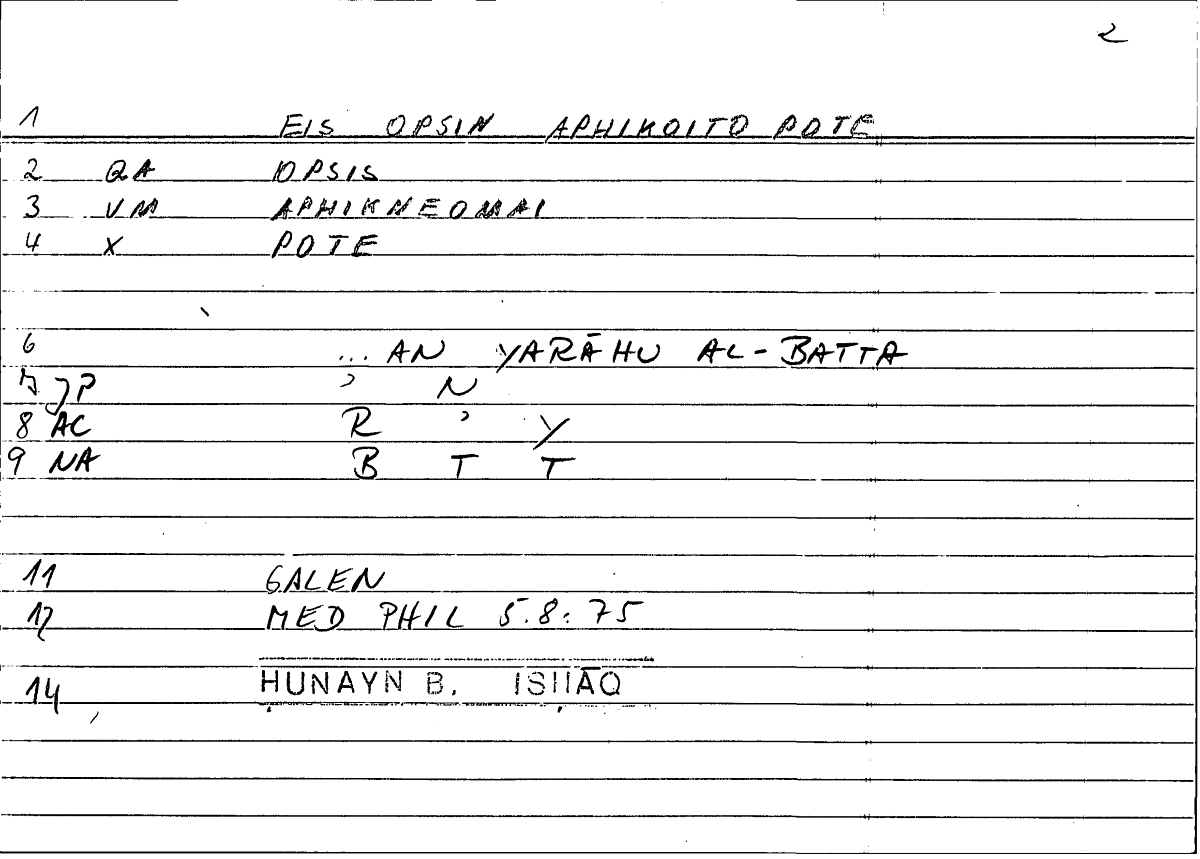 2
1 EIS OPSIN APHIKOITO POTE
2 QA OPSIS
3 VM APHIKNEOMAI
4 X POTE
6 ... AN YARĀHU AL-BATTA
7 JP ' N
8 AC R ' Y
9 NA B T T
11 GALEN
12 MED PHIL 5.8:75
14 ḤUNAYN B. ISḤĀQ